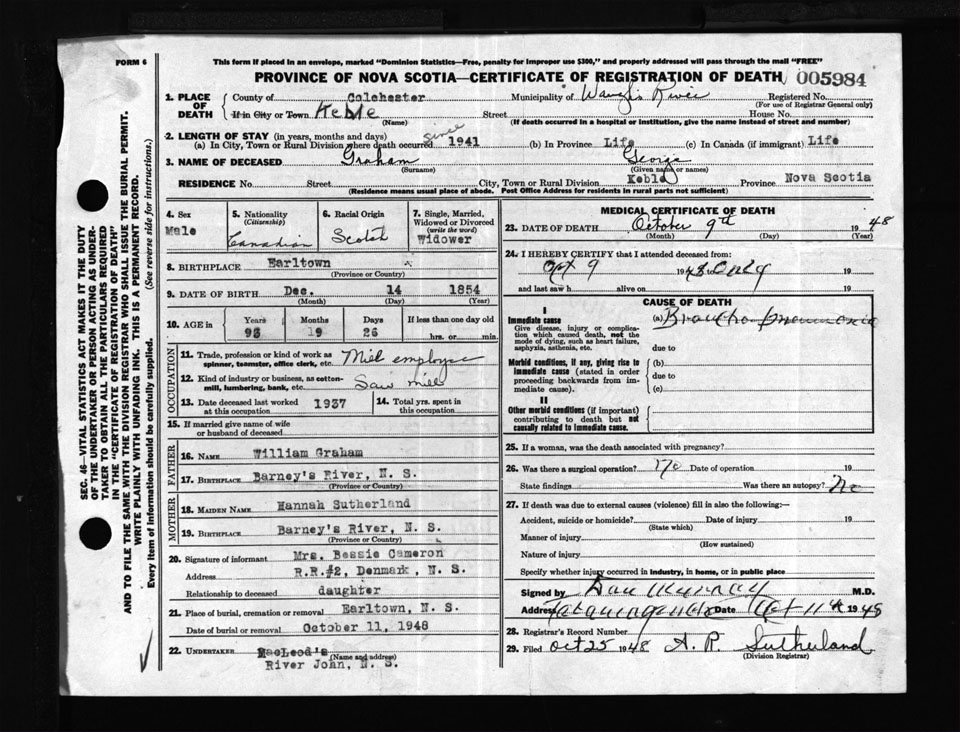 FORM 6
This form if placed in an envelope, marked "Dominion Statistics—Free, penalty for improper use $300," and properly addressed will pass through the mail "FREE"
PROVINCE OF NOVA SCOTIA—CERTIFICATE OF REGISTRATION OF DEATH 005984
SEC. 46—VITAL STATISTICS ACT MAKES IT THE DUTY
OF THE UNDERTAKER OR PERSON ACTING AS UNDER-
TAKER TO OBTAIN ALL THE PARTICULARS REQUIRED
IN THE "CERTIFICATE OF REGISTRATION OF DEATH"
AND TO FILE THE SAME WITH THE DIVISION REGISTRAR WHO SHALL ISSUE THE BURIAL PERMIT.
WRITE PLAINLY WITH UNFADING INK. THIS IS A PERMANENT RECORD.
Every item of information should be carefully supplied. (See reverse side for instructions.)
1. PLACE OF DEATH County of Colchester Municipality of River Registered No.
(For use of Registrar General only)
If in City or Town Keble Street House No.
(Name) (If death occurred in a hospital or institution, give the name instead of street and number)
2. LENGTH OF STAY (in years, months and days)
(a) In City, Town or Rural Division where death occurred since 1941 (b) In Province Life (c) In Canada (if immigrant) Life
3. NAME OF DECEASED Graham George
(Surname) (Given name or names)
RESIDENCE No. Street City, Town or Rural Division Keble Province Nova Scotia
(Residence means usual place of abode. Post Office Address for residents in rural parts not sufficient)
4. Sex
Male
5. Nationality
(Citizenship)
Canadian
6. Racial Origin
Scotch
7. Single, Married,
Widowed or Divorced
(write the word)
Widower
8. BIRTHPLACE Earltown
(Province or Country)
9. DATE OF BIRTH Dec. 14 1854
(Month) (Day) (Year)
10. AGE in Years Months Days If less than one day
93 19 26 hrs. or min.
OCCUPATION
11. Trade, profession or kind of work as
spinner, teamster, office clerk, etc. Mill employee
12. Kind of industry or business, as cotton-
mill, lumbering, bank, etc. Saw mill
13. Date deceased last worked
at this occupation 1937
14. Total yrs. spent in
this occupation
15. If married give name of wife
or husband of deceased
FATHER
16. NAME William Graham
17. BIRTHPLACE Barney's River, N. S.
(Province or Country)
MOTHER
18. MAIDEN NAME Hannah Sutherland
19. BIRTHPLACE Barney's River, N. S.
(Province or Country)
20. Signature of informant Mrs. Bessie Cameron
Address R.R.#2, Denmark, N. S.
Relationship to deceased daughter
21. Place of burial, cremation or removal Earltown, N. S.
Date of burial or removal October 11, 1948
22. UNDERTAKER MacLeod's
(Name and address)
River John, N. S.
MEDICAL CERTIFICATE OF DEATH
23. DATE OF DEATH October 9th 1948
(Month) (Day) (Year)
24. I HEREBY CERTIFY that I attended deceased from:
Oct 9 1948 only 19
and last saw h alive on 19
CAUSE OF DEATH
I
Immediate cause
Give disease, injury or complica-
tion which caused death, not the
mode of dying, such as heart failure,
asphyxia, asthenia, etc.
(a) Broncho-pneumonia
due to
Morbid conditions, if any, giving rise to
Immediate cause (stated in order
proceeding backwards from im-
mediate cause).
(b)
due to
(c)
II
Other morbid conditions (if important)
contributing to death but not
causally related to immediate cause.
25. If a woman, was the death associated with pregnancy?
26. Was there a surgical operation? no Date of operation 19
State findings Was there an autopsy? No
27. If death was due to external causes (violence) fill in also the following:—
Accident, suicide or homicide? Date of injury 19
(State which)
Manner of injury
(How sustained)
Nature of injury
Specify whether injury occurred in industry, in home, or in public place
Signed by Dan Murray M.D.
Address Tatamagouche Date Oct 11th 1948
28. Registrar's Record Number
29. Filed Oct 25 1948 A. R. Sutherland
(Division Registrar)